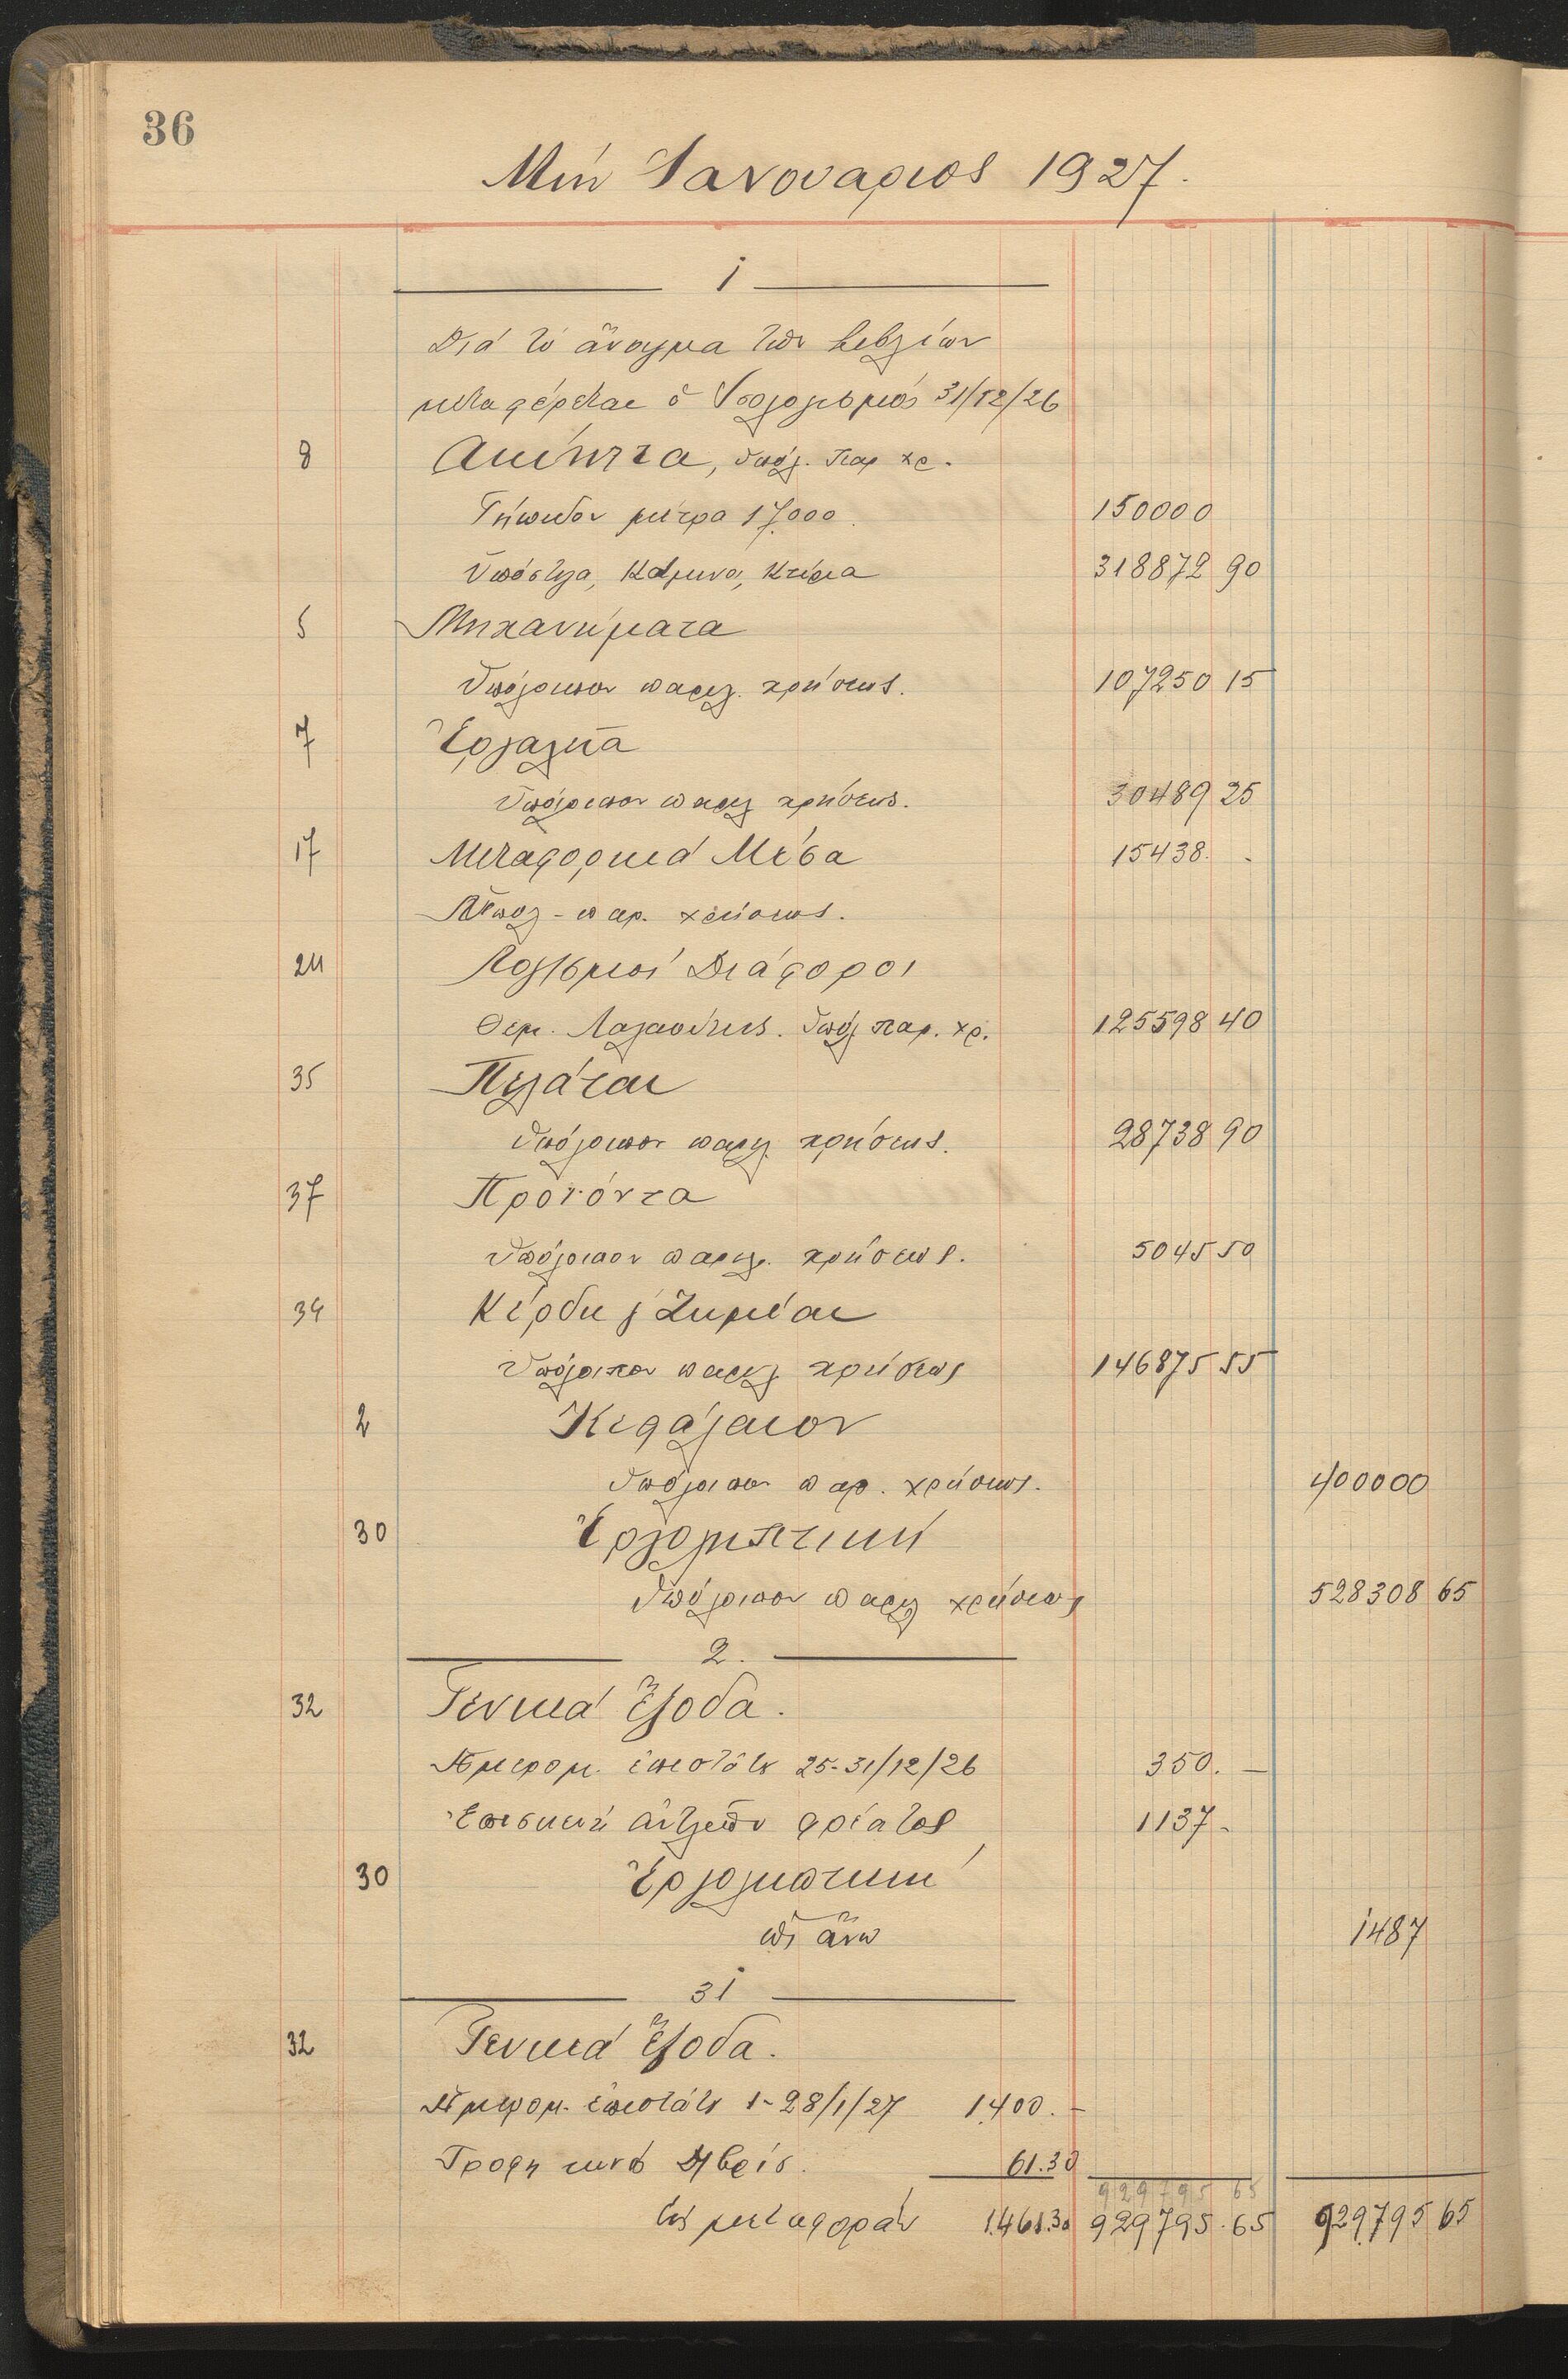 36
Μήν Ἰανουάριος 1927.
1
Διά τό ἄνοιγμα τῶν βιβλίων
μεταφέρεται ὁ Ἰσολογισμός 31/12/26
8 Ακίνητα, ὑπόλ. παρ χρ.
Γήπεδον μέτρα 17.000. 150000
Υπόστεγα, Κάμινοι, Κτίρια 318872 90
5 Μηχανήματα
Ὑπόλοιπον παρελ. χρήσεως. 107250 15
7 Ἐργαλεῖα
Ὑπόλοιπον παρελ χρήσεως. 30489 25
17 Μεταφορικά Μέσα 15438. -
Ὑπολ - παρ. χρήσεως.
24 Λογ/σμοί Διάφοροι
Θεμ. . Ὑπόλ παρ. χρ. 125598 40
35 Πελάται
Ὑπόλοιπον παρελ χρήσεως. 28738 90
37 Προϊόντα
Ὑπόλοιπον παρελ. χρήσεως. 5045 50
34 Κέρδη & Ζημίαι
Ὑπόλοιπον παρελ χρήσεως 146875 55
2 Κεφάλαιον
Ὑπόλοιπον παρ. χρήσεως. 400000
30 Ἐργοληπτική
Ὑπόλοιπον παρελ χρήσεως 528308 65
2.
32 Γενικά Ἔξοδα.
Ἡμερομ. ἐπιστάτη 25-31/12/26 350. —
Ἐπισκευή ἀντλιῶν φρέατος 1137 -
30 Ἐργοληπτική
ὡς ἄνω 1487
31
32 Γενικά Ἔξοδα.
Ἡμερομ. ἐπιστάτη 1-28/1/27 1.400. -
Τροφη 61.30
929795 65
Εἰς μεταφοράν 1.461.30 929795.65 929.795 65